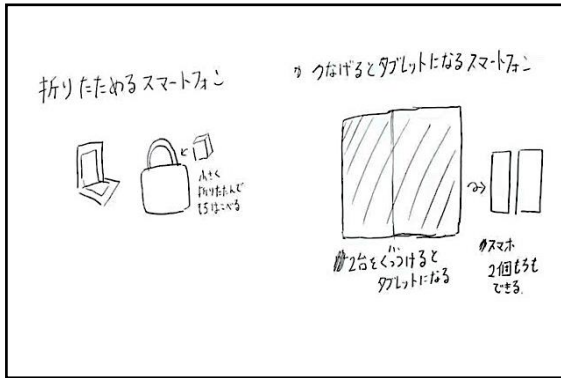 折りたためるスマートフォン
小さく
折りたたんで
もちはこべる
つなげるとタブレットになるスマートフォン
2台をくっつけると
タブレットになる
スマホ
2個もちも
できる。